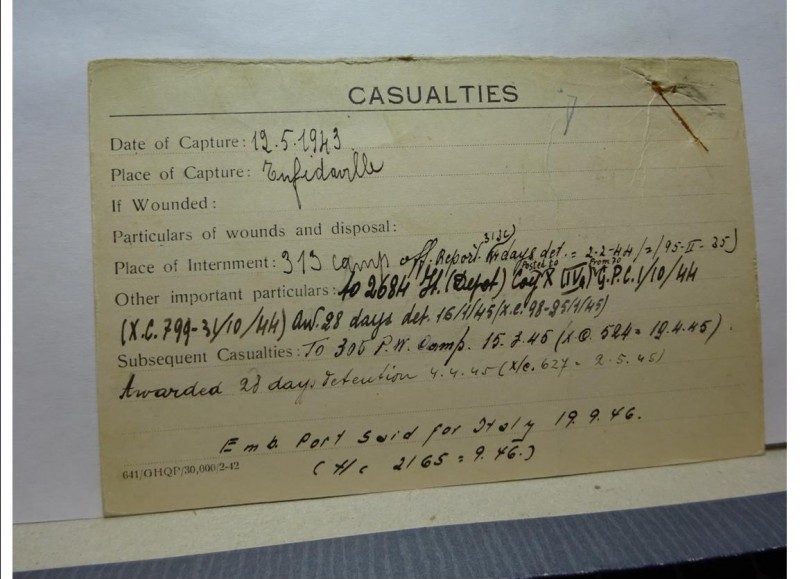 CASUALTIES
Date of Capture: 12.5.1943
Place of Capture: Enfidaville
If Wounded:
Particulars of wounds and disposal:
3136)
Place of Internment: 313 camp off. Report. 14 days det. = 2-2-44/=/95-II-35)
Posted to
Other important particulars: to 2684 It. (Depot) Coy X G.P.C. 1/10/44
(X.C. 799-31/10/44) Aw. 28 days det. 16/1/45/X.C. 98-25/1/45)
Subsequent Casualties: To 306 P.W. Camp. 15.3.45 (X.O. 524= 19.4.45).
Awarded 28 days detention 4.4.45 (X/c. 627= 2.5.45)
Emb. Port Said for Italy 19.9.46.
2165 = 9.46.)
641/GHQP/30,000/2-42